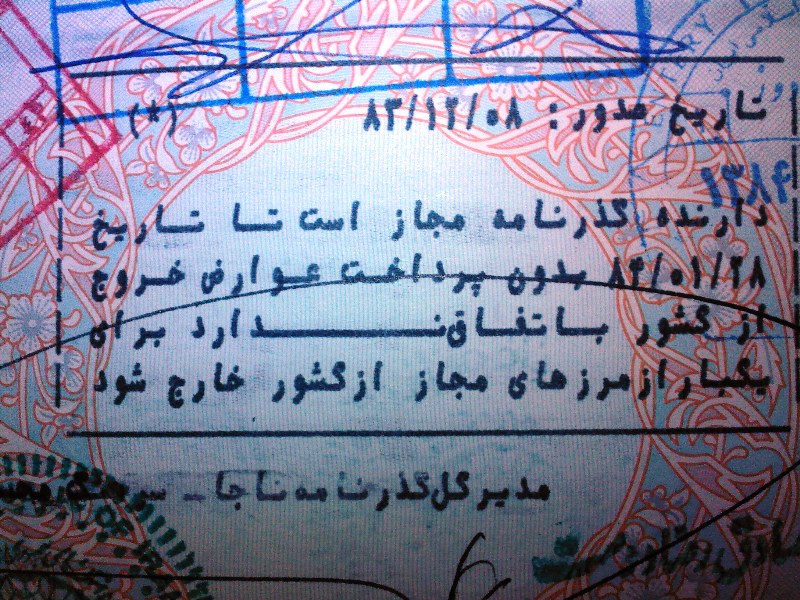 تاریخ صدور: ۸۳/۱۲/۰۸ (*)
۱۳۸۴
دارنده گذرنامه مجاز است تا تاریخ
۸۴/۰۱/۲۸ بدون پرداخت عوارض خروج
از کشور باتفاق ندارد برای
یکبار از مرزهای مجاز ازکشور خارج شود
مدیرکل گذرنامه ناجا - سرهنگ